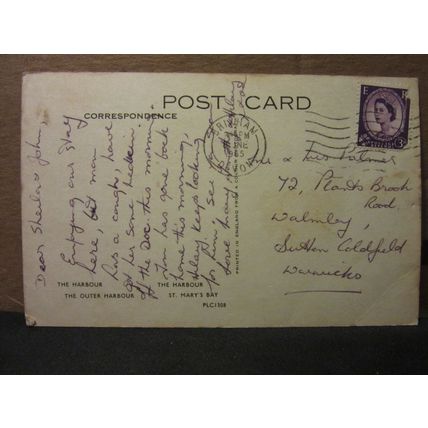 POST CARD
CORRESPONDENCE
Dear Sheila & John
Enjoying our stay
here, but mam
has a cough, have
got her some medicin
off the Doc this morning
Jim has gone back
home this morning,
keeps looking
for him. See you
love
PRINTED IN ENGLAND
BRIXHAM
DEVON
E R
3D
Mr & Mrs Palmer
72, Plants Brook
Road,
Walmley,
Sutton Coldfield
Warwicks
THE HARBOUR THE HARBOUR
THE OUTER HARBOUR ST. MARY'S BAY
PLC1508